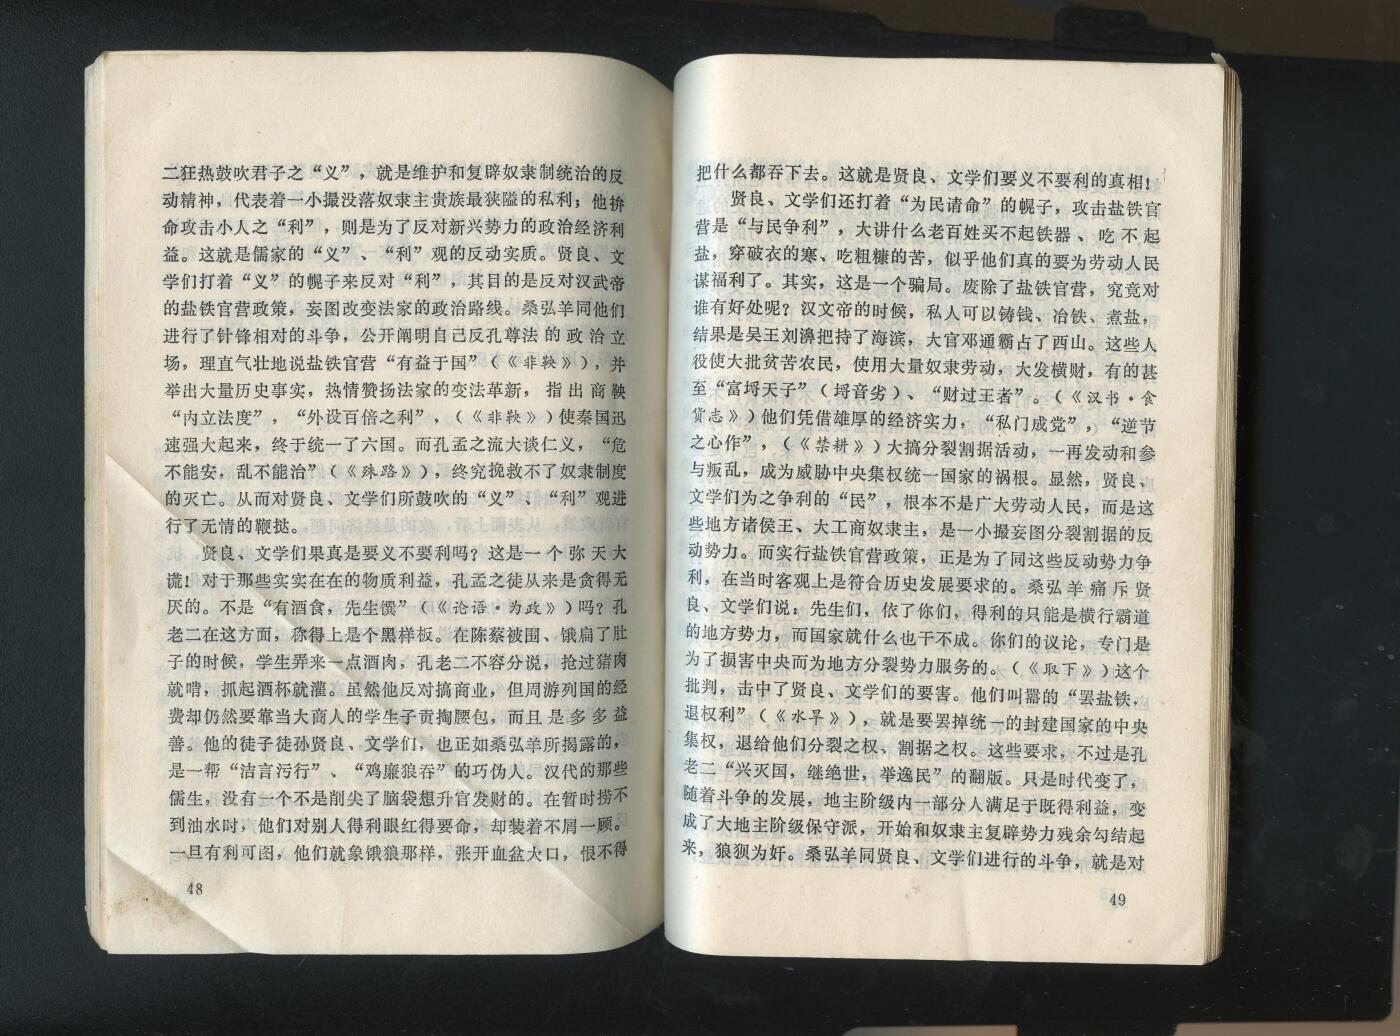 二狂热鼓吹君子之“义”，就是维护和复辟奴隶制统治的反
动精神，代表着一小撮没落奴隶主贵族最狭隘的私利；他拚
命攻击小人之“利”，则是为了反对新兴势力的政治经济利
益。这就是儒家的“义”、“利”观的反动实质。贤良、文
学们打着“义”的幌子来反对“利”，其目的是反对汉武帝
的盐铁官营政策，妄图改变法家的政治路线。桑弘羊同他们
进行了针锋相对的斗争，公开阐明自己反孔尊法的政治立
场，理直气壮地说盐铁官营“有益于国”（《非鞅》），并
举出大量历史事实，热情赞扬法家的变法革新，指出商鞅
“内立法度”，“外设百倍之利”，（《非鞅》）使秦国迅
速强大起来，终于统一了六国。而孔孟之流大谈仁义，“危
不能安，乱不能治”（《殊路》），终究挽救不了奴隶制度
的灭亡。从而对贤良、文学们所鼓吹的“义”、“利”观进
行了无情的鞭挞。
贤良、文学们果真是要义不要利吗？这是一个弥天大
谎！对于那些实实在在的物质利益，孔孟之徒从来是贪得无
厌的。不是“有酒食，先生馔”（《论语·为政》）吗？孔
老二在这方面，称得上是个黑样板。在陈蔡被围、饿扁了肚
子的时候，学生弄来一点酒肉，孔老二不容分说，抢过猪肉
就啃，抓起酒杯就灌。虽然他反对搞商业，但周游列国的经
费却仍然要靠当大商人的学生子贡掏腰包，而且是多多益
善。他的徒子徒孙贤良、文学们，也正如桑弘羊所揭露的，
是一帮“洁言污行”、“鸡廉狼吞”的巧伪人。汉代的那些
儒生，没有一个不是削尖了脑袋想升官发财的。在暂时捞不
到油水时，他们对别人得利眼红得要命，却装着不屑一顾。
一旦有利可图，他们就象饿狼那样，张开血盆大口，恨不得
48
把什么都吞下去。这就是贤良、文学们要义不要利的真相！
贤良、文学们还打着“为民请命”的幌子，攻击盐铁官
营是“与民争利”，大讲什么老百姓买不起铁器、吃不起
盐，穿破衣的寒、吃粗糠的苦，似乎他们真的要为劳动人民
谋福利了。其实，这是一个骗局。废除了盐铁官营，究竟对
谁有好处呢？汉文帝的时候，私人可以铸钱、冶铁、煮盐，
结果是吴王刘濞把持了海滨，大官邓通霸占了西山。这些人
役使大批贫苦农民，使用大量奴隶劳动，大发横财，有的甚
至“富埒天子”（埒音劣）、“财过王者”。（《汉书·食
货志》）他们凭借雄厚的经济实力，“私门成党”，“逆节
之心作”，（《禁耕》）大搞分裂割据活动，一再发动和参
与叛乱，成为威胁中央集权统一国家的祸根。显然，贤良、
文学们为之争利的“民”，根本不是广大劳动人民，而是这
些地方诸侯王、大工商奴隶主，是一小撮妄图分裂割据的反
动势力。而实行盐铁官营政策，正是为了同这些反动势力争
利，在当时客观上是符合历史发展要求的。桑弘羊痛斥贤
良、文学们说：先生们，依了你们，得利的只能是横行霸道
的地方势力，而国家就什么也干不成。你们的议论，专门是
为了损害中央而为地方分裂势力服务的。（《取下》）这个
批判，击中了贤良、文学们的要害。他们叫嚣的“罢盐铁，
退权利”（《水旱》），就是要罢掉统一的封建国家的中央
集权，退给他们分裂之权、割据之权。这些要求，不过是孔
老二“兴灭国，继绝世，举逸民”的翻版。只是时代变了，
随着斗争的发展，地主阶级内一部分人满足于既得利益，变
成了大地主阶级保守派，开始和奴隶主复辟势力残余勾结起
来，狼狈为奸。桑弘羊同贤良、文学们进行的斗争，就是对
49